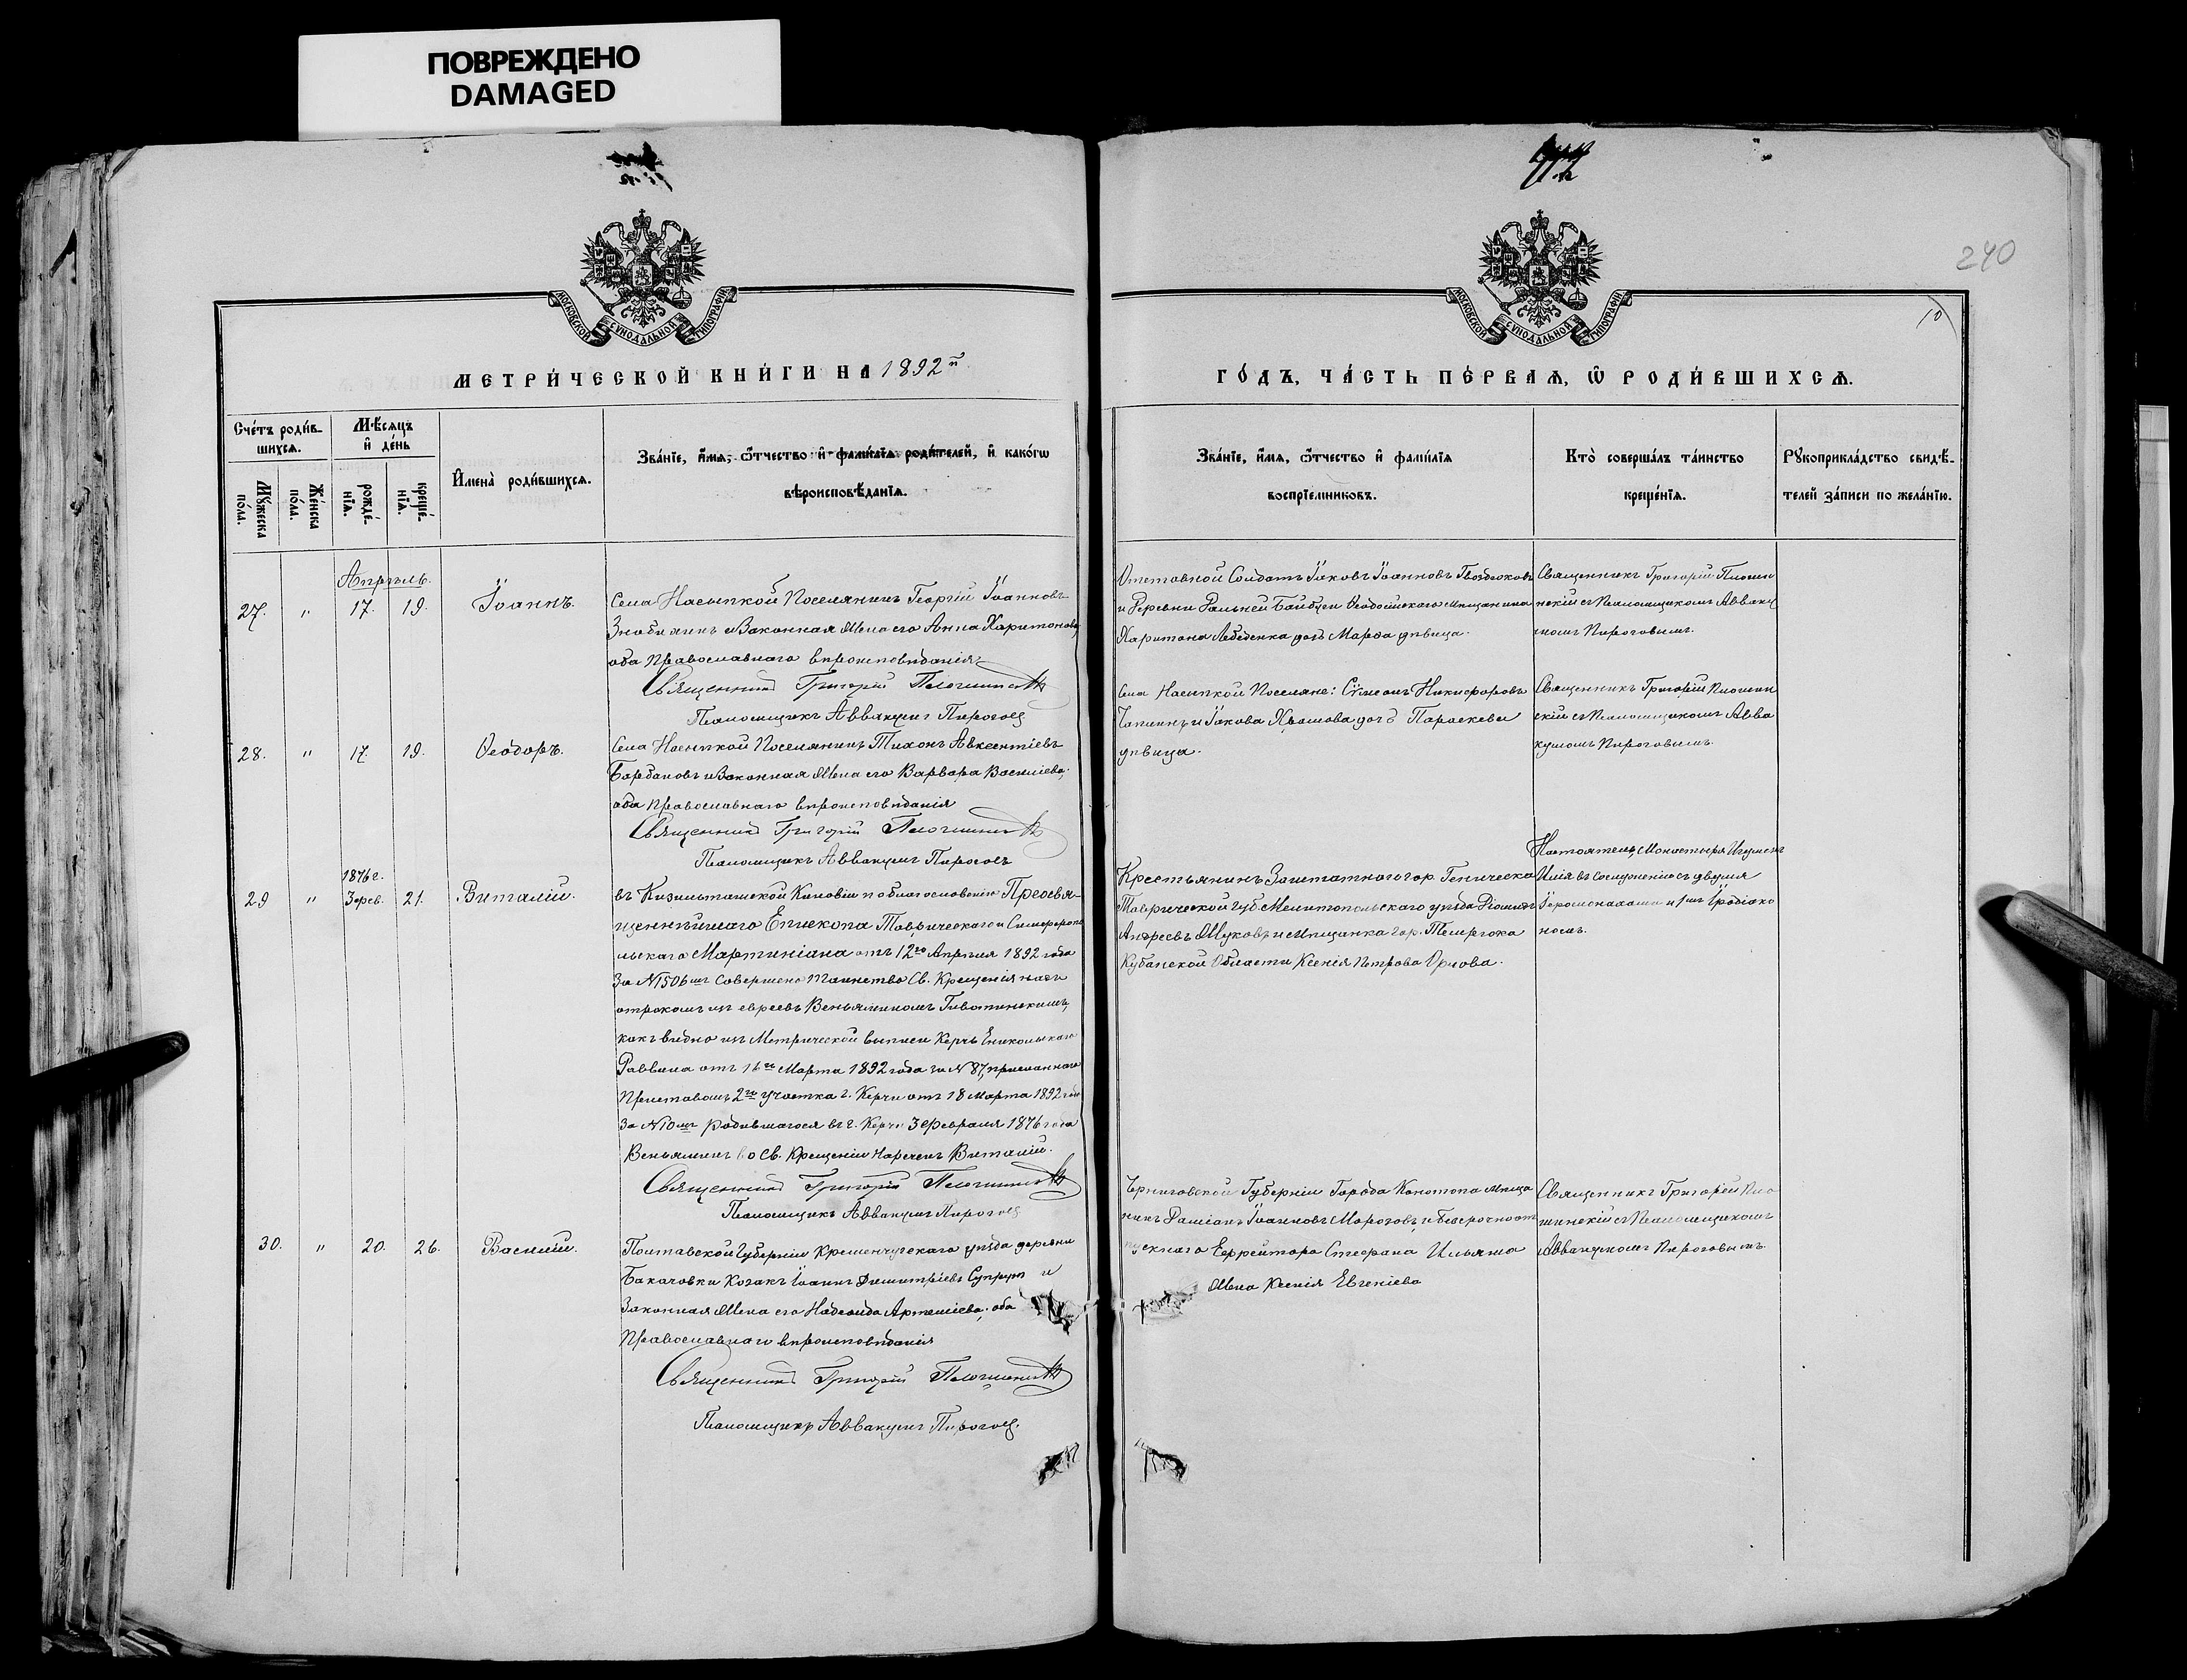 ПОВРЕЖДЕНО
DAMAGED
240
10
МОСКОВСКОЙ СУНОДАЛЬНОЙ ТИПОГРАФІИ
МОСКОВСКОЙ СУНОДАЛЬНОЙ ТИПОГРАФІИ
МЕТРИ́ЧЕСКОЙ КНИ́ГИ НА 1892й
ГО́ДЪ, ЧА́СТЬ ПЕ́РВАЯ, Ѡ РОДИ́ВШИХСЯ.
Сче́тъ роди́в-
шихся.
Мꙋ́жеска
по́ла.
Же́нска
по́ла.
Мѣ́сяцъ
и҆ де́нь
рожде́-
нїя.
креще́-
нїя.
И҆мена̀ роди́вшихся.
Зва́нїе, и҆́мя, ѻ҆́тчество и҆ фамилїя роди́телей, и҆ како́гѡ
вѣроисповѣ́данїя.
Зва́нїе, и҆́мя, ѻ҆́тчество и҆ фами́лїя
воспрїе́мниковъ.
Кто̀ соверша́лъ та́инство
креще́нїя.
Рꙋкоприкла́дство свидѣ́-
телей за́писи по жела́нїю.
Апрѣль.
27. " 17. 19. Іоаннъ.
Села Насыпкой Поселянинъ Георгій Іоанновъ
Знобилинъ и Законная Жена его Анна Харитонова,
оба Православнаго вѣроисповѣданія
Священникъ Григорій
Псаломщикъ Аввакумъ Пироговъ
Отставной Солдатъ Іаковъ Іоанновъ
и Деревни Дальней Байбуги Ѳеодосійскаго мѣщанина
Харитона Лебеденка дочь Марѳа дѣвица.
Священникъ Григорій Плошин
скій съ Псаломщикомъ Авваку
момъ Пироговымъ.
28. " 17. 19. Ѳеодоръ.
Села Насыпкой Поселянинъ Тихонъ Авксентіевъ
Барбановъ и Законная Жена его Варвара Василіева,
оба Православнаго вѣроисповѣданія
Священникъ Григорій
Псаломщикъ Аввакумъ Пироговъ
Села Насыпкой Поселяне: Сѵмеонъ Никифоровъ
и Іакова дочь Параскева
дѣвица.
Священникъ Григорій Плошин
скій съ Псаломщикомъ Авва
кумомъ Пироговымъ.
1876 г.
29 " 3 Фев. 21. Виталій.
въ Кизильташской Киновіи по благословенію Преосвя-
щеннѣйшаго Епископа Таврическаго и Симферопо
льскаго Мартиніана отъ 12го Апрѣля 1892 года
За №1506мъ совершено Таинство Св. Крещенія надъ
отрокомъ изъ евреевъ Веньяминомъ
какъ видно изъ Метрической выписи Керчь Еникольскаго
Раввина отъ 16го Марта 1892 года за № 87, присланнаго
Приставомъ 2го участка г. Керчи отъ 18 Марта 1892 года
За №10мъ родившагося въ г. Керчи 3 Февраля 1876 года
Веньяминъ во Св. Крещеніи нареченъ Виталій.
Священникъ Григорій
Псаломщикъ Аввакумъ Пироговъ
Крестьянинъ Заштатнаго гор. Геническа
Таврической Губ. Мелитопольскаго уѣзда
Андреевъ Жуковъ и мѣщанка гор. Темрюка
Кубанской Области Ксенія Петрова Орлова.
Настоятель Монастыря Игуменъ
въ сослуженіи съ двумя
Іеромонахами и 1мъ Іеродіако
номъ.
30. " 20. 26. Василій.
Полтавской Губерніи Кременчугскаго уѣзда деревни
Козакъ Іоаннъ Димитріевъ Супрунъ и
Законная Жена его Надежда Артеміева, оба
Православнаго вѣроисповѣданія
Священникъ Григорій
Псаломщикъ Аввакумъ Пироговъ
Черниговской Губерніи Города Конотопа мѣща
нинъ Даміанъ Іоанновъ Морозовъ и безсрочноот
пускнаго Ефрейтора Стефана
Жена Ксенія Евгеніева
Священникъ Григорій Пло
шинскій съ Псаломщикомъ
Аввакумомъ Пироговымъ